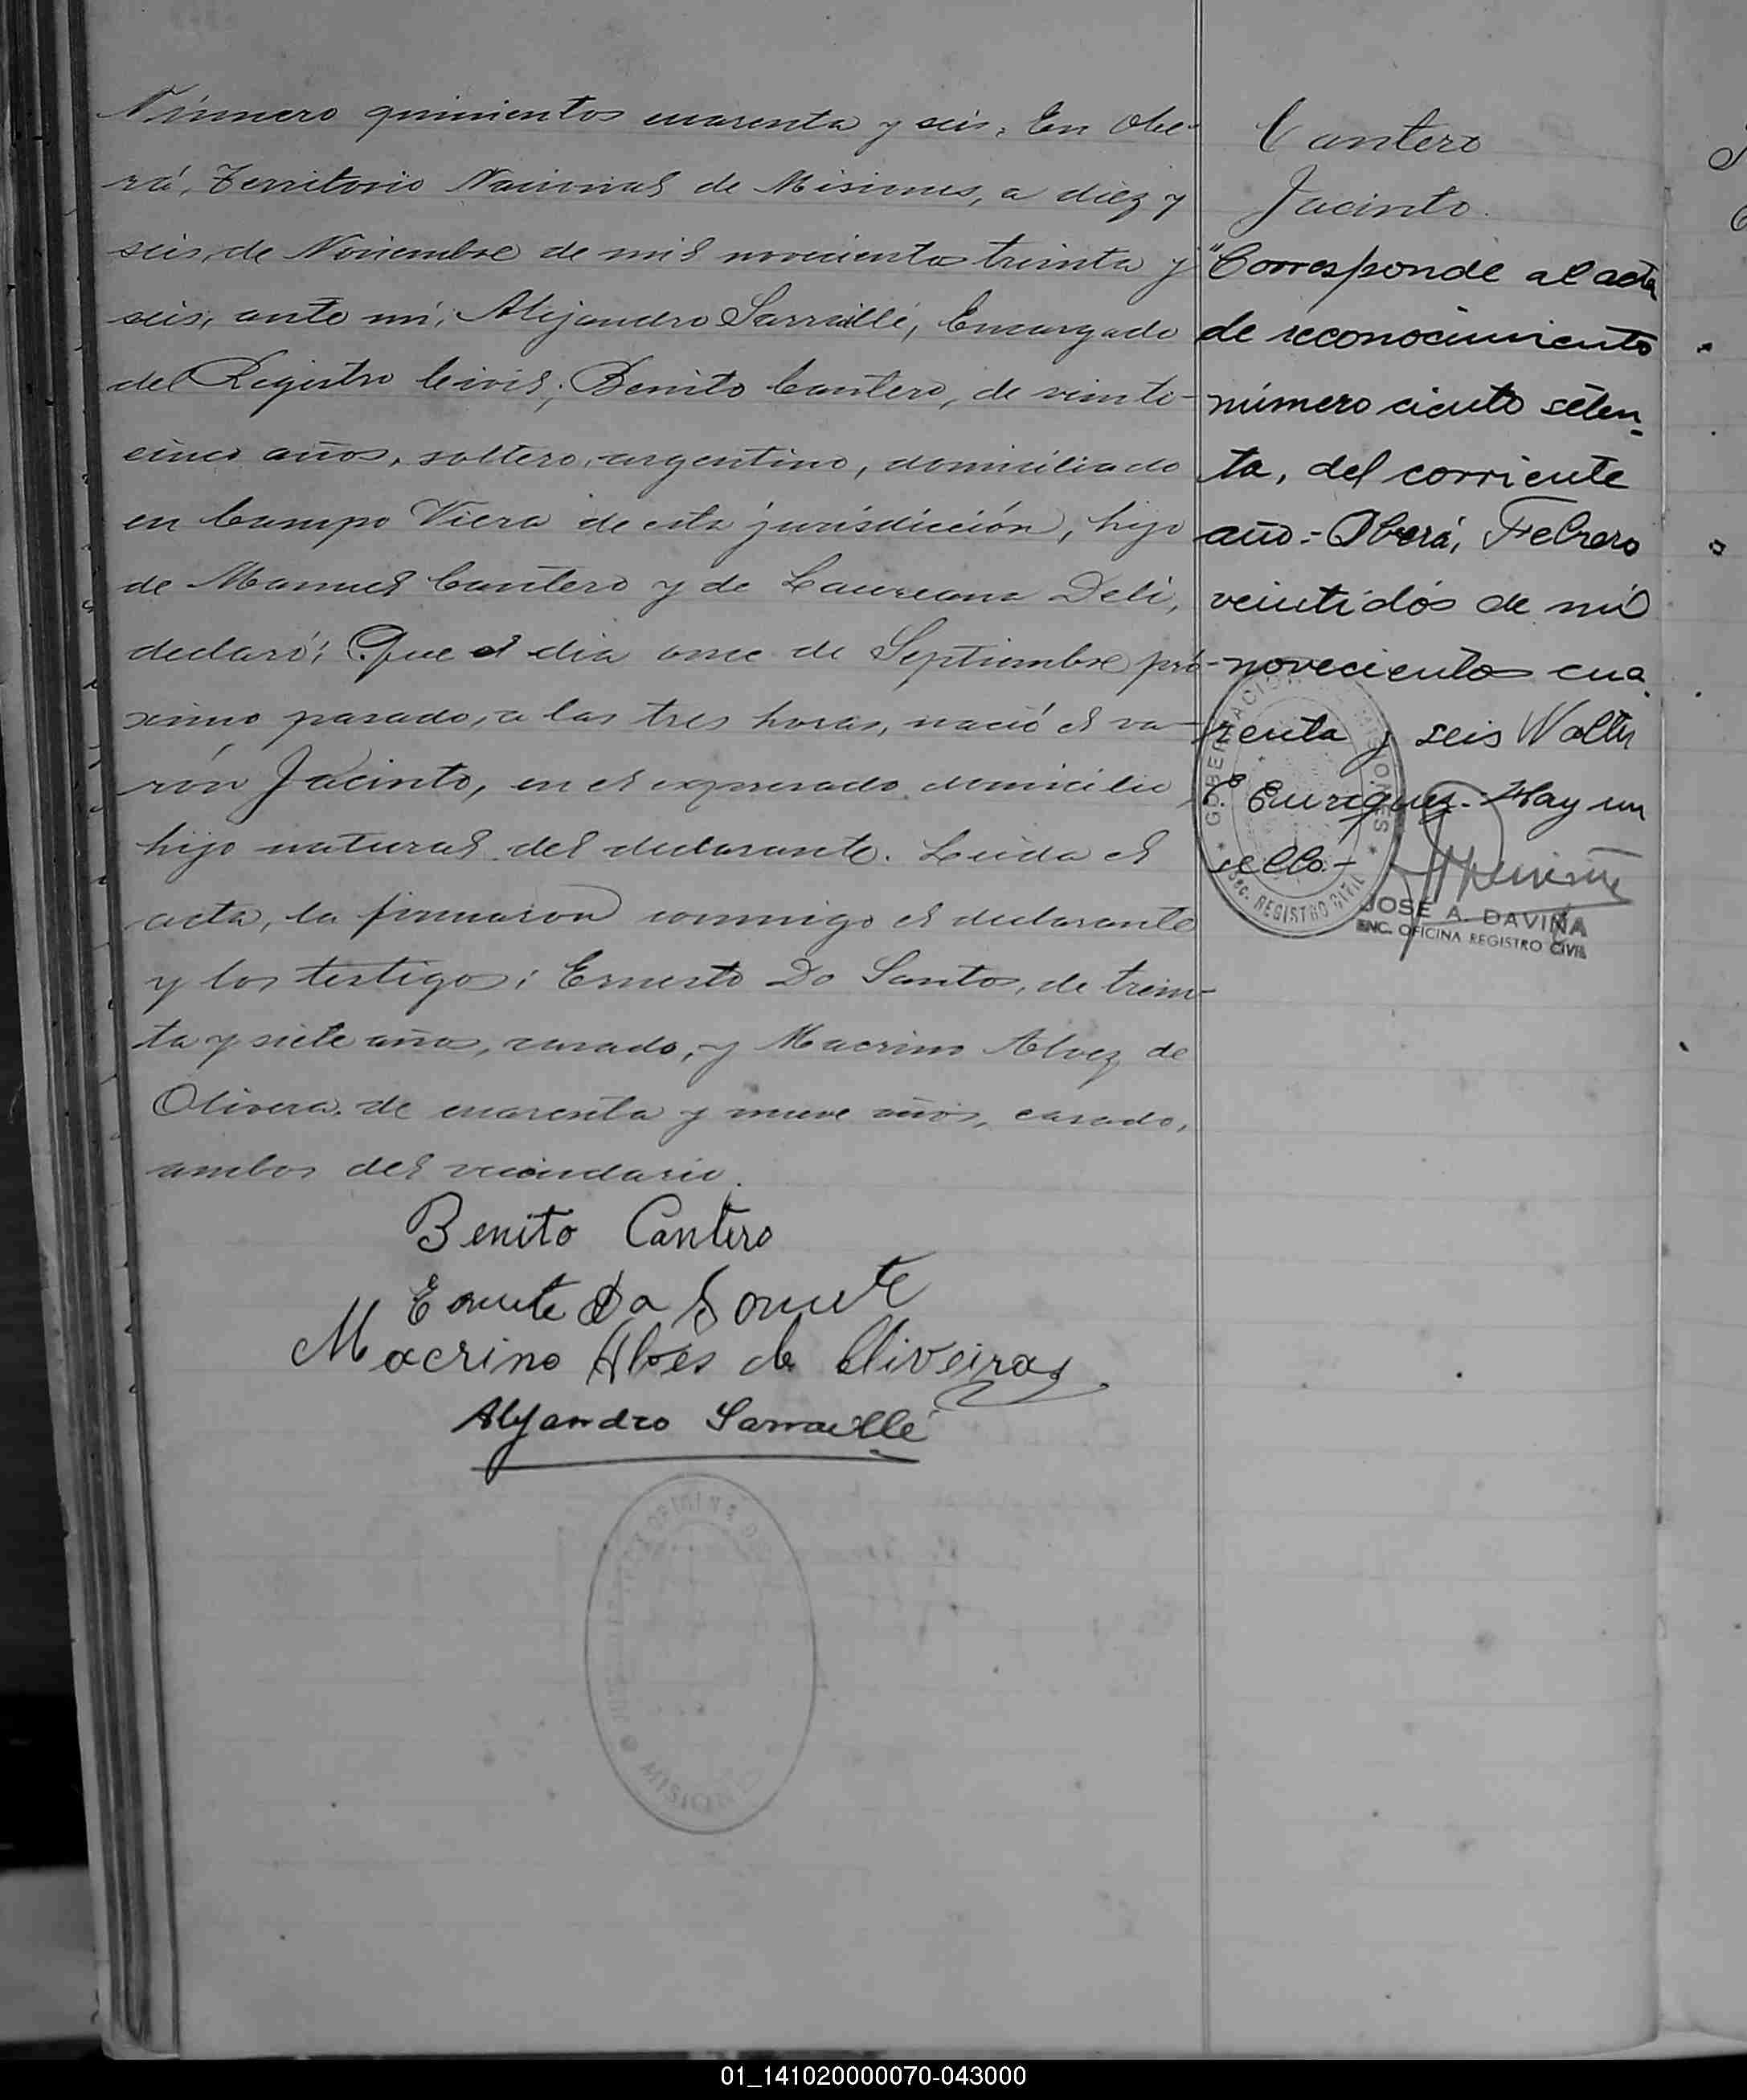 Número quinientos cuarenta y seis. En Obe-
rá, Territorio Nacional de Misiones, a diez y
seis de Noviembre de mil novecientos treinta y
seis, ante mí, Alejandro Sarraillé, Encargado
del Registro Civil; Benito Cantero, de veinti-
cinco años, soltero, argentino, domiciliado
en Campo Viera de esta jurisdicción, hijo
de Manuel Cantero y de Laureana Deli,
declaró: Que el dia once de Septiembre pró-
ximo pasado, a las tres horas, nació el va-
rón Jacinto, en el expresado domicilio
hijo natural del declarante. Leída el
acta, la firmaron conmigo el declarante
y los testigos: Ernesto Do Santos, de trein-
ta y siete años, casado, y Macrino Alvez de
Olivera, de cuarenta y nueve años, casado,
ambos del vecindario.
Benito Cantero
Macrino Alves de Oliveira
Alejandro Sarraillé
Cantero
Jacinto.
"Corresponde al acta
de reconocimiento
número ciento seten-
ta, del corriente
año.- Oberá, Febrero
veintidós de mil
novecientos cua-
renta y seis Walter
E. Enriquez.- Hay un
sello.-
GOBERNACION MISIONES
SEC. REGISTRO CIVIL
JOSÉ A. DAVIÑA
ENC. OFICINA REGISTRO CIVIL
MISIONES
01_141020000070-043000